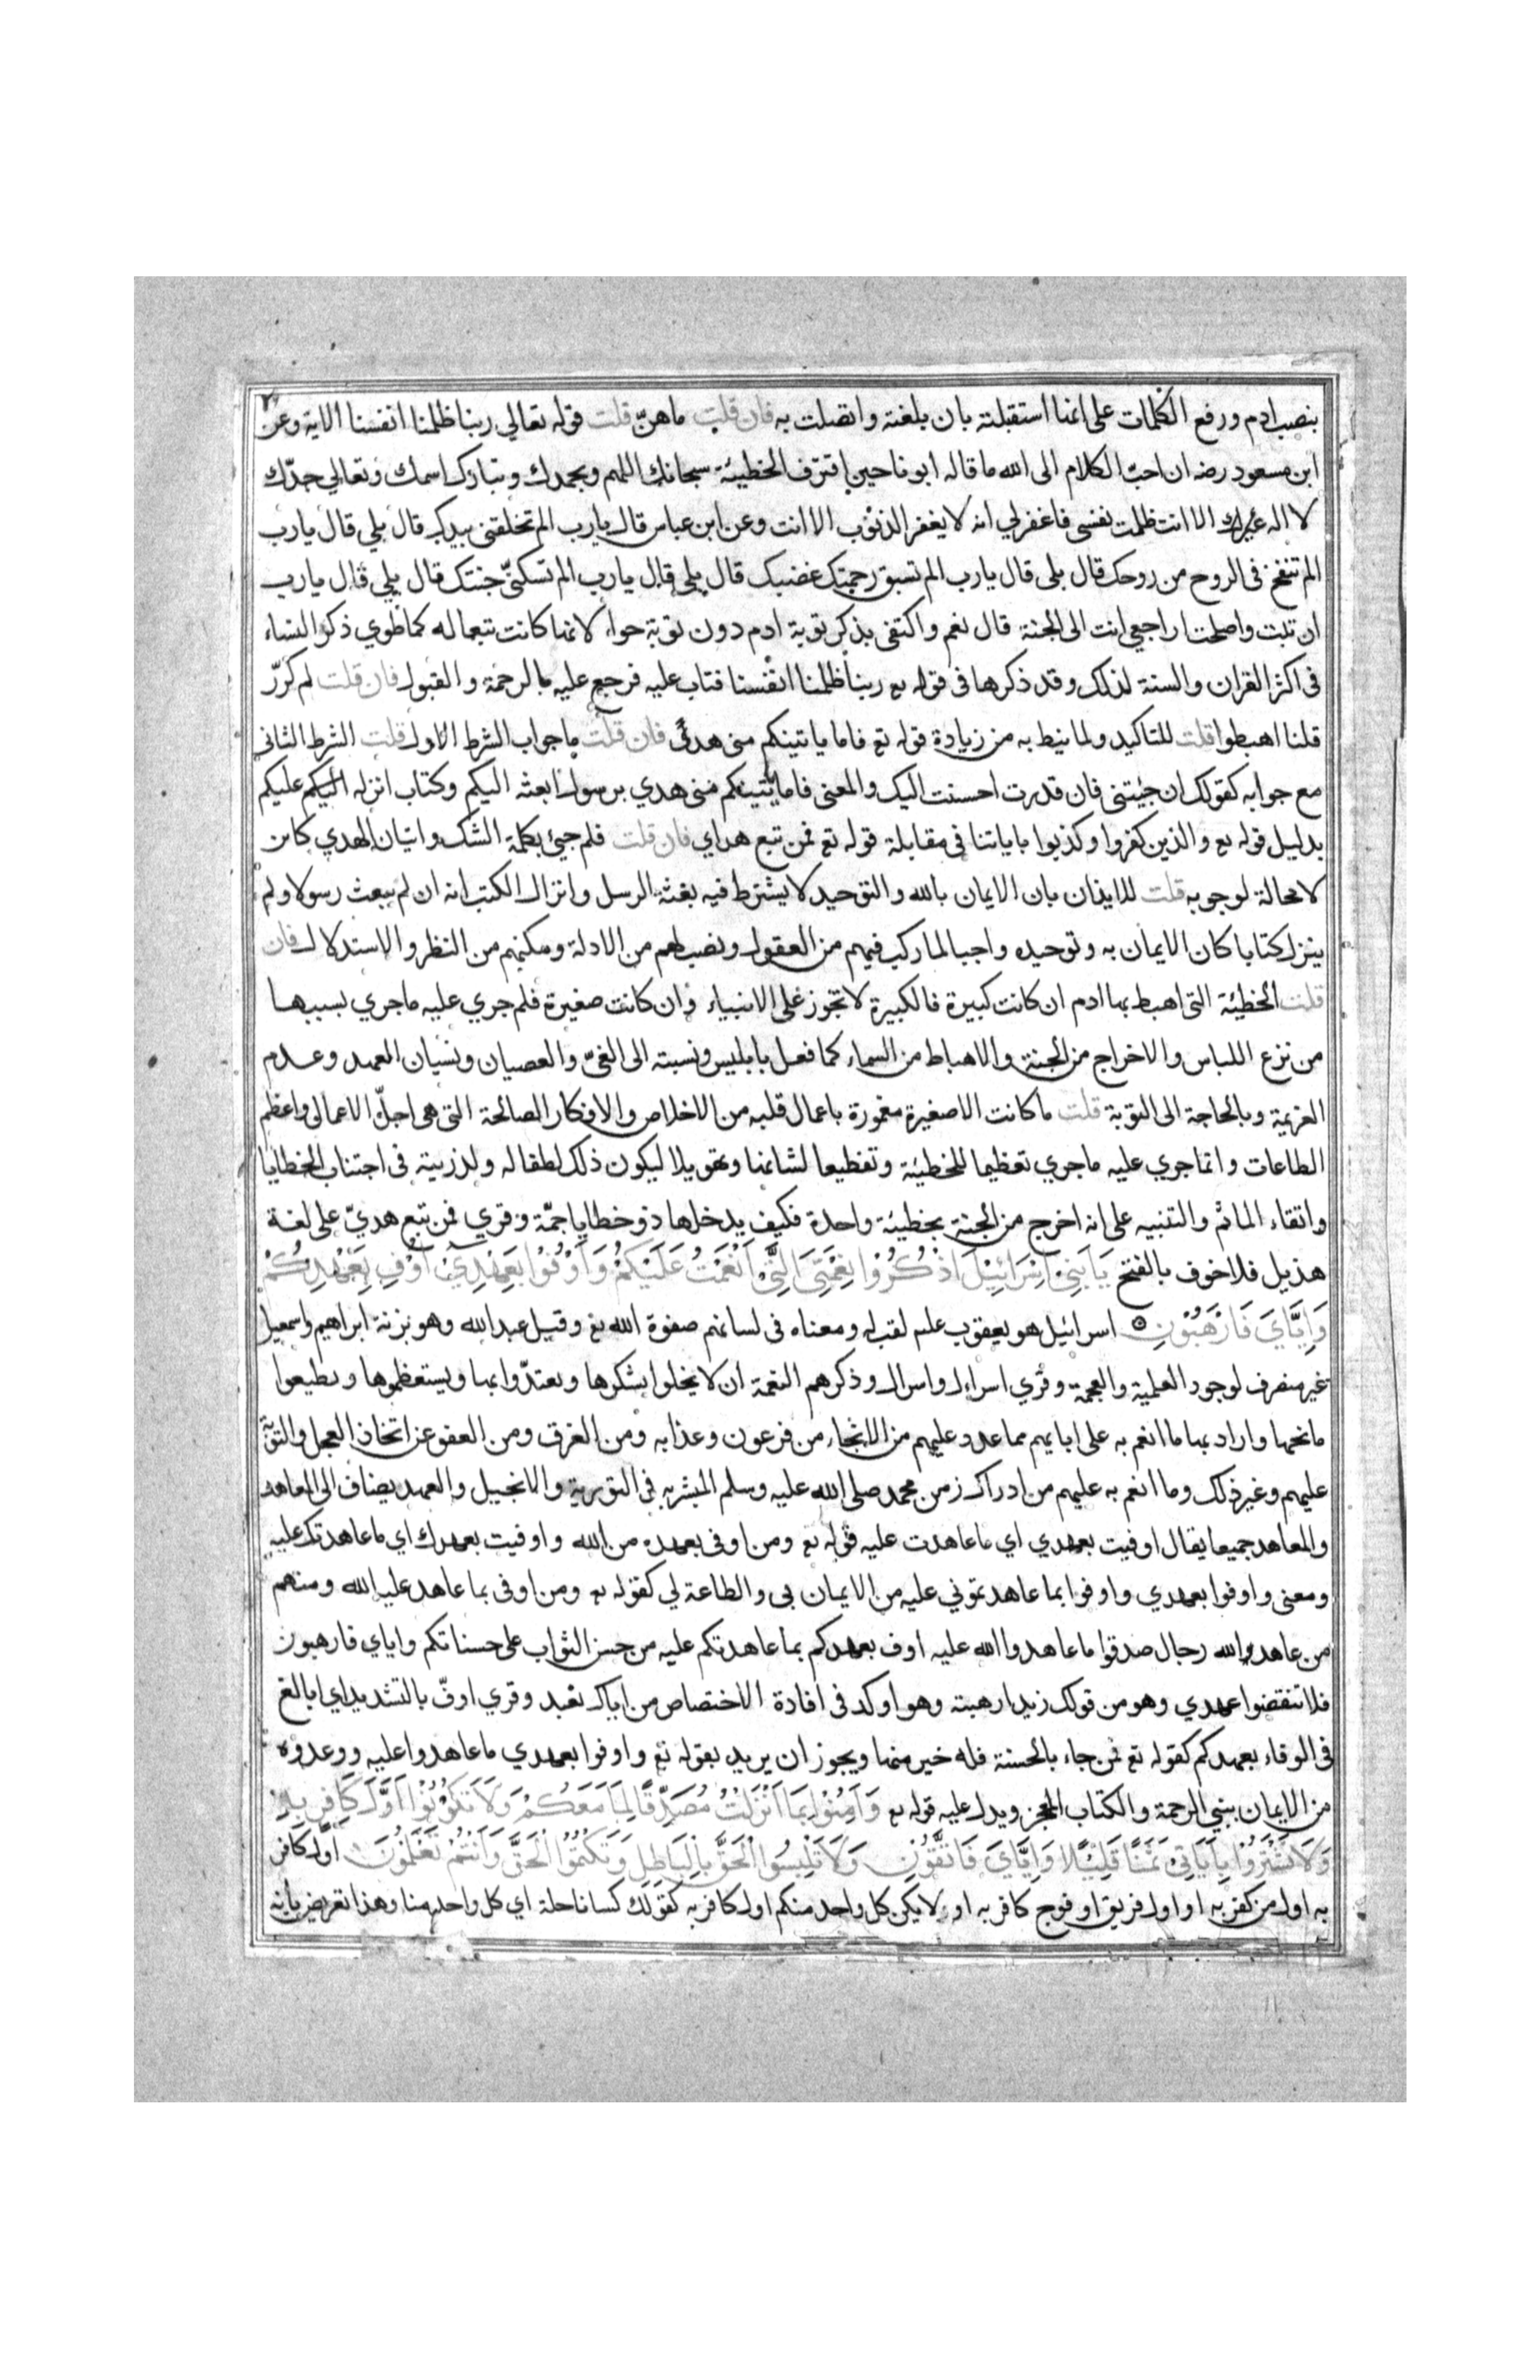 بنصب ادم ورفع الكلمات على انها استقبلته بان بلغته واتصلت به فان قلت ماهن قلت قوله تعالي ربنا ظلمنا انفسنا الاية وعن
ابن مسعود رضه ان احب الكلام الى الله ما قاله ابونا حين اقترف الخطيئة سبحانك اللهم وبحمدك وتبارك اسمك وتعالي جدّك
لا اله غيرك الا انت ظلمت نفسى فاغفرلي انه لا يغفر الذنوب الا انت وعن ابن عباس قال يارب الم تخلقنى بيدك قال بلي قال يارب
الم تنفخ فى الروح من روحك قال بلى قال يارب الم تسبق رحمتك غضبك قال بلى قال يارب الم تسكنّى جنتك قال بلي قال يارب
ان تبت واصلحت اراجعي انت الى الجنة قال نعم واكتفى بذكر توبة ادم دون توبة حواء لانها كانت تبعا له كما طوي ذكر النساء
فى اكثر القران والسنة لذلك وقد ذكرها فى قوله تع ربنا ظلمنا انفسنا فتاب عليه فرجع عليه بالرحمة والقبول فان قلت لم كرّر
قلنا اهبطوا قلت للتاكيد ولما نيط به من زيادة قوله تع فاما ياتينكم منى هدى فان قلت ماجواب الشرط الاول قلت الشرط الثانى
مع جوابه كقولك ان جئتنى فان قدرت احسنت اليك والمعنى فاما ياتينكم منى هدي برسول ابعثه اليكم وكتاب انزله اليكم عليكم
بدليل قوله تع والذين كفروا وكذبوا باياتنا فى مقابلة قوله تع فمن تبع هداي فان قلت فلم جيئ بكلمة الشك واتيان الهدي كاين
لا محالة لوجوبه قلت للايذان بان الايمان بالله والتوحيد لا يشترط فيه بعثة الرسل وانزال الكتب انه ان لم يبعث رسولا ولم
ينزل كتابا كان الايمان به وتوحيده واجبا لما ركب فيهم من العقول ونصب لهم من الادلة ومكنهم من النظر والاستدلال فان
قلت الخطيئة التى اهبط بها ادم ان كانت كبيرة فالكبيرة لا تجوز على الانبياء وان كانت صغيرة فلم جري عليه ماجري بسببها
من نزع اللباس والاخراج من الجنة والاهباط من السماء كما فعل بابليس ونسبته الى الغىّ والعصيان ونسيان العهد وعدم
العزيمة وبالحاجة الى التوبة قلت ما كانت الا صغيرة مغمورة باعمال قلبه من الاخلاص والافكار الصالحة التى هى اجلّ الاعمال واعظم
الطاعات وانما جري عليه ماجري تعظيما للخطيئة وتفظيعا لشانها وتهويلا ليكون ذلك لطفا له ولذريته فى اجتناب الخطايا
واتقاء الماثم والتنبيه على انه اخرج من الجنة بخطيئة واحدة فكيف يدخلها ذو خطايا جمّة وقري فمن تبع هديّ على لغة
هذيل فلا خوف بالفتح يَا بَنِى اِسْرَائِيْلَ اذْكُرُوْا نِعْمَتِىَ الَّتِى اَنْعَمْتُ عَلَيْكُمْ وَاَوْفُوْا بِعَهْدِىْ اُوْفِ بِعَهْدِكُمْ
وَاِيَّايَ فَارْهَبُوْنِ اسرائيل هو يعقوب علم لقب له ومعناه فى لسانهم صفوة الله تع وقيل عبد الله وهو بزنة ابراهيم واسمعيل
غير منصرف لوجود العلمية والعجمة وقري اسراءل واسرال وذكرهم النعمة ان لا يخلوا بشكرها ويعتدّوا بها ويستعظموها ويطيعوا
مانحها واراد بها ما انعم به على ابايهم مما عدد عليهم من الانجاء من فرعون وعذابه ومن الغرق ومن العفو عن اتخاذ العجل والتوبة
عليهم وغير ذلك وما انعم به عليهم من ادراك زمن محمد صلى الله عليه وسلم المبشر به فى التورية والانجيل والعهد يضاف الى المعاهد
والمعاهد جميعا يقال اوفيت بعهدي اي ما عاهدت عليه قوله تع ومن اوفى بعهده من الله واوفيت بعهدك اي ما عاهدتك عليه
ومعنى واوفوا بعهدي واوفوا بما عاهدتموني عليه من الايمان بى والطاعة لي كقوله تع ومن اوفى بما عاهد عليه الله ومنهم
من عاهد الله رجال صدقوا ما عاهدوا الله عليه اوف بعهدكم بما عاهدتكم عليه من حسن الثواب على حسناتكم واياي فارهبون
فلا تنقضوا عهدي وهو من قولك زيدا رهبته وهو اوكد فى افادة الاختصاص من اياك نعبد وقري اوفّ بالتشديد اي ابالغ
فى الوفاء بعهدكم كقوله تع فمن جاء بالحسنة فله خير منها ويجوز ان يريد بقوله تع واوفوا بعهدي ما عاهدوا عليه ووعدوه
من الايمان بنبي الرحمة والكتاب المعجز ويدل عليه قوله تع وَاٰمِنُوْا بِمَا اَنْزَلْتُ مُصَدِّقًا لِمَا مَعَكُمْ وَلَا تَكُوْنُوْا اَوَّلَ كَافِرٍ بِهِ
وَلَا تَشْتَرُوْا بِاٰيَاتِىْ ثَمَنًا قَلِيْلًا وَاِيَّايَ فَاتَّقُوْنِ وَلَا تَلْبِسُوا الْحَقَّ بِالْبَاطِلِ وَتَكْتُمُوْا الْحَقَّ وَاَنْتُمْ تَعْلَمُوْنَ اول كافر
به اول من كفر به او اول فريق او فوج كافر به او لا يكن كل واحد منكم اول كافر به كقولك كسانا حلة اي كل واحد منا وهذا تعريض بانه